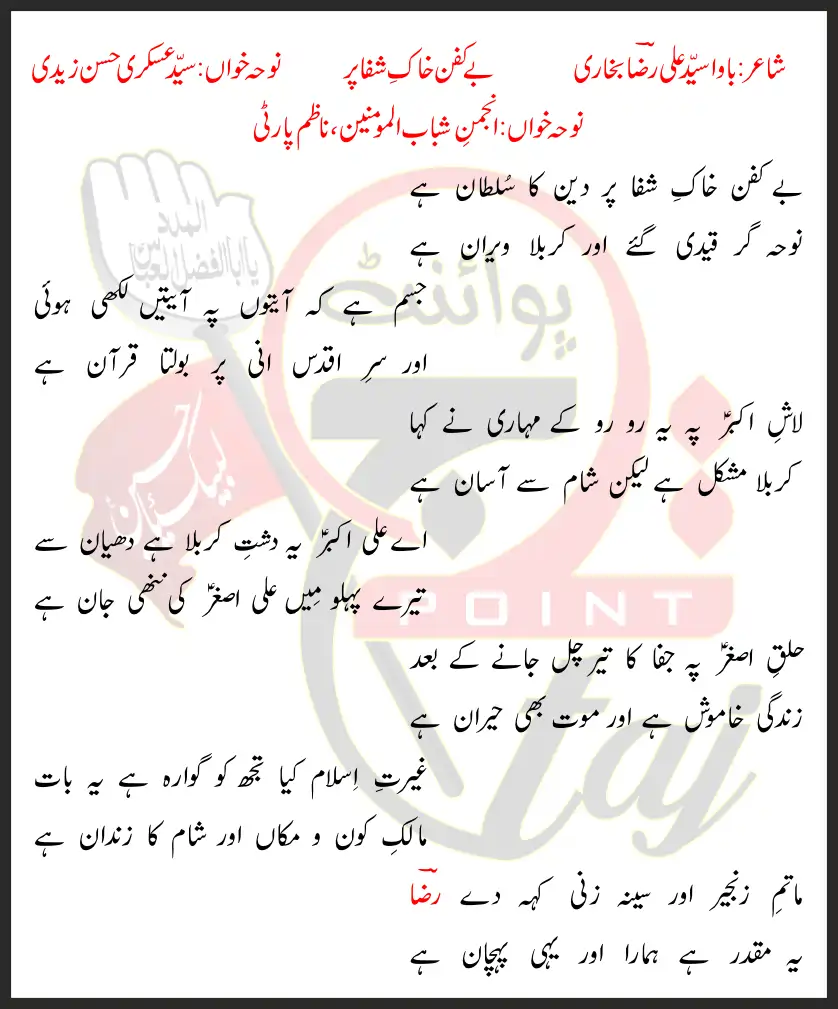 شاعر: باوا سیّد علی رضاؔ بخاری    بے کفن خاکِ شفا پر    نوحہ خواں: سیّد عسکری حسن زیدی
نوحہ خواں: انجمنِ شباب المومنین، ناظم پارٹی
بے کفن خاکِ شفا پر دین کا سُلطان ہے
نوحہ گر قیدی گئے اور کربلا ویران ہے
جسم ہے کہ آیتوں پہ آیتیں لکھی ہوئی
اور سرِ اقدس انی پر بولتا قرآن ہے
لاشِ اکبرؑ پہ یہ رو رو کے مہاری نے کہا
کربلا مشکل ہے لیکن شام سے آسان ہے
اے علی اکبرؑ یہ دشتِ کربلا ہے دھیان سے
تیرے پہلو مِیں علی اصغرؑ کی ننھی جان ہے
حلقِ اصغرؑ پہ جفا کا تیر چل جانے کے بعد
زندگی خاموش ہے اور موت بھی حیران ہے
غیرتِ اِسلام کیا تجھ کو گوارہ ہے یہ بات
مالکِ کون و مکاں اور شام کا زندان ہے
ماتمِ زنجیر اور سینہ زنی کہہ دے رضاؔ
یہ مقدر ہے ہمارا اور یہی پہچان ہے
المدد
یا ابا الفضل العباس
لبیک یا حسین
پوائنٹ
POINT
taj